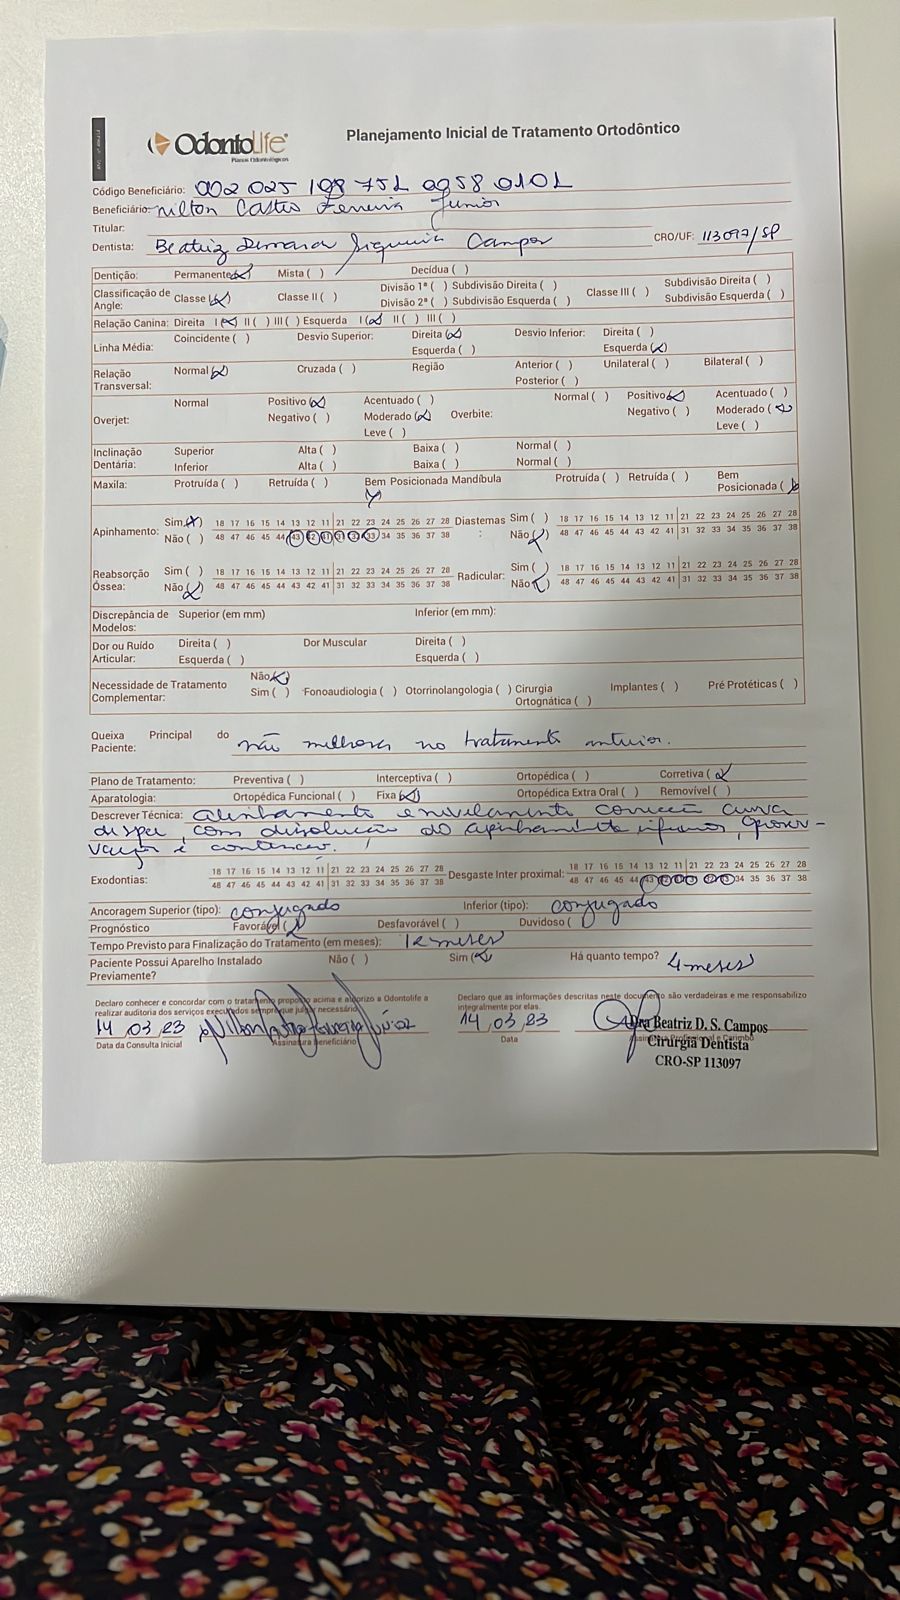 OdontoLife
Planos Odontológicos
Planejamento Inicial de Tratamento Ortodôntico
Código Beneficiário: 002 025 198 751 0058 0101
Beneficiário: Nilton Castro Ferreira Junior
Titular:
Dentista: Beatriz Siqueira Campos CRO/UF: 113097/SP
Dentição: Permanente(x) Mista ( ) Decídua ( )
Classificação de Angle: Classe I(x) Classe II ( ) Divisão 1ª ( ) Subdivisão Direita ( ) Classe III ( ) Subdivisão Direita ( )
Divisão 2ª ( ) Subdivisão Esquerda ( ) Subdivisão Esquerda ( )
Relação Canina: Direita I(x) II ( ) III ( ) Esquerda I(x) II ( ) III ( )
Linha Média: Coincidente ( ) Desvio Superior: Direita (x) Desvio Inferior: Direita ( )
Esquerda ( ) Esquerda (x)
Relação Transversal: Normal (x) Cruzada ( ) Região Anterior ( ) Unilateral ( ) Bilateral ( )
Posterior ( )
Overjet: Normal Positivo (x) Acentuado ( ) Overbite: Normal ( ) Positivo (x) Acentuado ( )
Negativo ( ) Moderado (x) Negativo ( ) Moderado (x)
Leve ( ) Leve ( )
Inclinação Dentária: Superior Alta ( ) Baixa ( ) Normal ( )
Inferior Alta ( ) Baixa ( ) Normal ( )
Maxila: Protruída ( ) Retruída ( ) Bem Posicionada Mandíbula Protruída ( ) Retruída ( ) Bem Posicionada (x)
Apinhamento: Sim(x) 18 17 16 15 14 13 12 11 21 22 23 24 25 26 27 28 Diastemas: Sim ( ) 18 17 16 15 14 13 12 11 21 22 23 24 25 26 27 28
Não ( ) 48 47 46 45 44 43 42 41 31 32 33 34 35 36 37 38 Não (x) 48 47 46 45 44 43 42 41 31 32 33 34 35 36 37 38
Reabsorção Óssea: Sim ( ) 18 17 16 15 14 13 12 11 21 22 23 24 25 26 27 28 Radicular: Sim ( ) 18 17 16 15 14 13 12 11 21 22 23 24 25 26 27 28
Não (x) 48 47 46 45 44 43 42 41 31 32 33 34 35 36 37 38 Não (x) 48 47 46 45 44 43 42 41 31 32 33 34 35 36 37 38
Discrepância de Modelos: Superior (em mm) Inferior (em mm):
Dor ou Ruído Articular: Direita ( ) Dor Muscular Direita ( )
Esquerda ( ) Esquerda ( )
Necessidade de Tratamento Complementar: Não(x)
Sim ( ) Fonoaudiologia ( ) Otorrinolangologia ( ) Cirurgia Ortognática ( ) Implantes ( ) Pré Protéticas ( )
Queixa Principal do Paciente: não melhora no tratamento anterior.
Plano de Tratamento: Preventiva ( ) Interceptiva ( ) Ortopédica ( ) Corretiva (x)
Aparatologia: Ortopédica Funcional ( ) Fixa (x) Ortopédica Extra Oral ( ) Removível ( )
Descrever Técnica: alinhamento e nivelamento correção curva
de spee, com dissolução do apinhamento inferior,
e contenção.
Exodontias: 18 17 16 15 14 13 12 11 21 22 23 24 25 26 27 28 Desgaste Inter proximal: 18 17 16 15 14 13 12 11 21 22 23 24 25 26 27 28
48 47 46 45 44 43 42 41 31 32 33 34 35 36 37 38 48 47 46 45 44 43 42 41 31 32 33 34 35 36 37 38
Ancoragem Superior (tipo): conjugado Inferior (tipo): conjugado
Prognóstico Favorável (x) Desfavorável ( ) Duvidoso ( )
Tempo Previsto para Finalização do Tratamento (em meses): 12 meses
Paciente Possui Aparelho Instalado Previamente? Não ( ) Sim (x) Há quanto tempo? 4 meses
Declaro conhecer e concordar com o tratamento proposto acima e autorizo a Odontolife a
realizar auditoria dos serviços executados sempre que julgar necessário
Declaro que as informações descritas neste documento são verdadeiras e me responsabilizo
integralmente por elas.
14 03 23 Nilton Castro Ferreira Júnior 14 03 23
Data da Consulta Inicial Assinatura Beneficiário Data
Dra Beatriz D. S. Campos
Cirurgiã Dentista
CRO-SP 113097